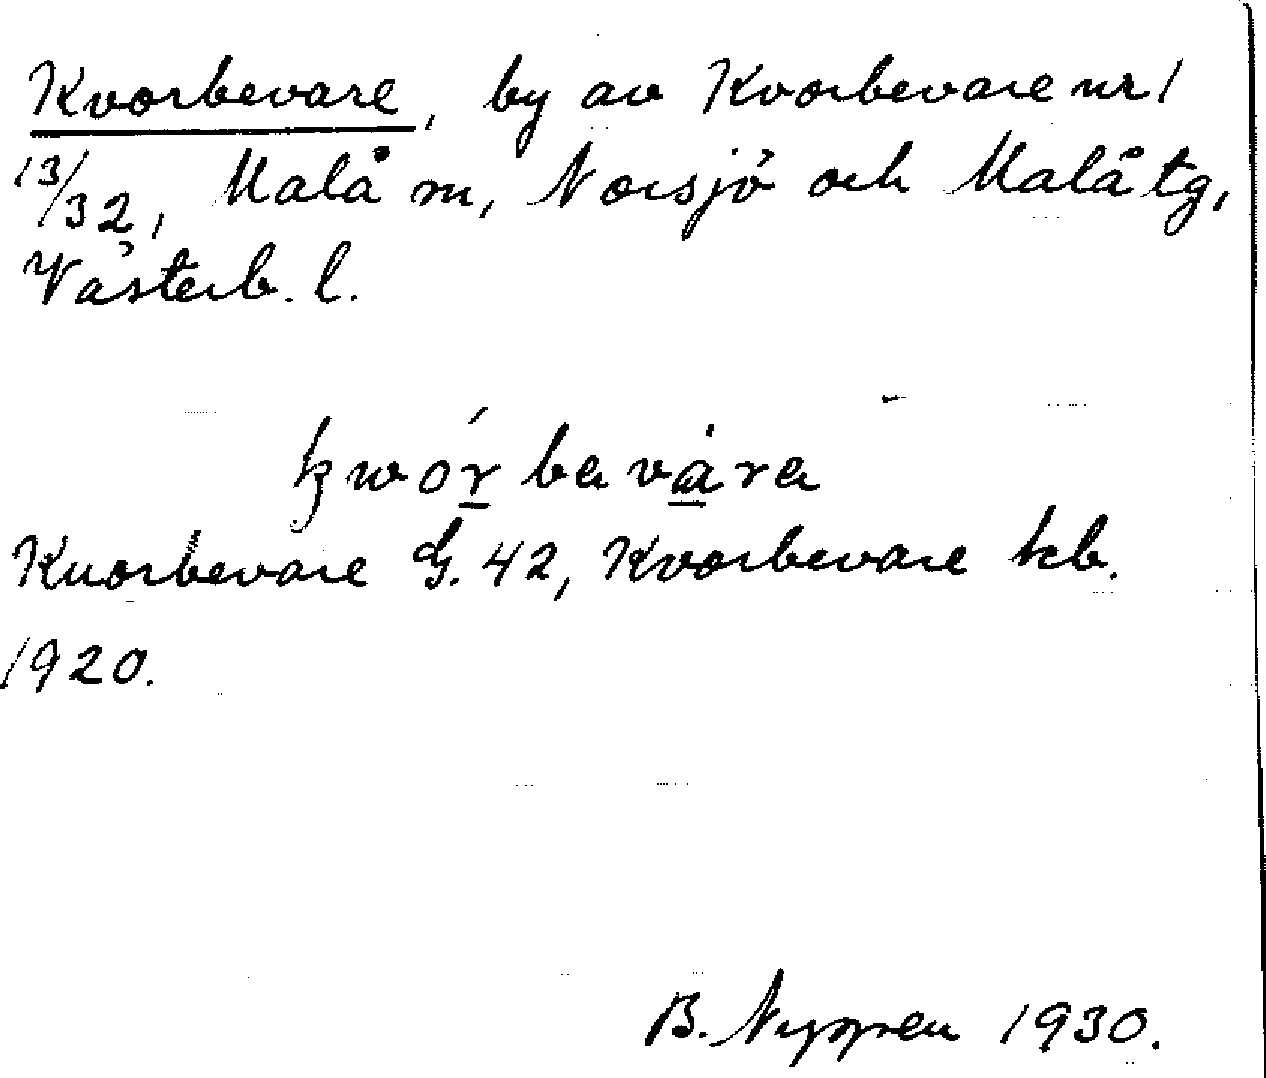 Kvorbevare, by av Kvorbevare nr 1
13/32, Malå m, Norsjö och Malå tg,
Västerb. l.
kwórbavàra
Kuorbevare G. 42, Kvorbevare kb.
1920.
B. 1930.